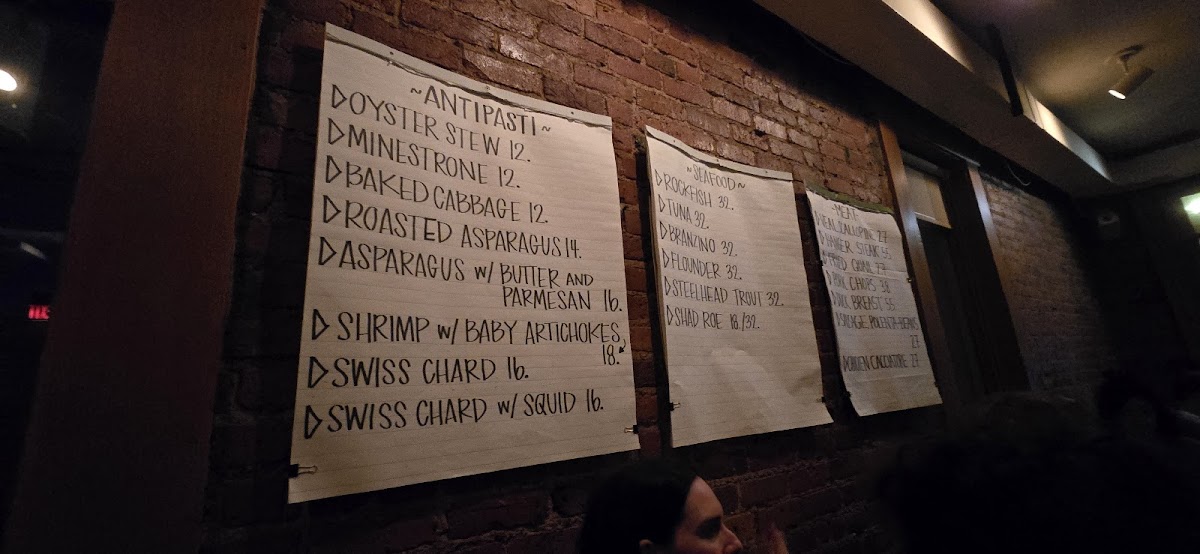 ~ANTIPASTI~
▷OYSTER STEW 12.
▷MINESTRONE 12.
▷BAKED CABBAGE 12.
▷ROASTED ASPARAGUS 14.
▷ASPARAGUS w/ BUTTER AND
PARMESAN 16.
▷SHRIMP w/ BABY ARTICHOKES,
18.
▷SWISS CHARD 16.
▷SWISS CHARD w/ SQUID 16.
~SEAFOOD~
▷ROCKFISH 32.
▷TUNA 32.
▷BRANZINO 32.
▷FLOUNDER 32.
▷STEELHEAD TROUT 32.
▷SHAD ROE 18./32.
~MEAT~
27
STEAK
QUAIL 27
▷PORK CHOPS 38
BREAST
▷SAUSAGE-POLENTA-BEANS
27
▷CHICKEN CACCIATORE 27